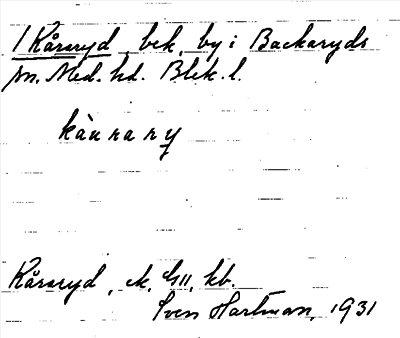 1 Kåraryd, bek. by i Backaryds
sn. Med. hd. Blek. l.
kàurary
Kåraryd, ek. GII, kb.
Sven Hartman, 1931